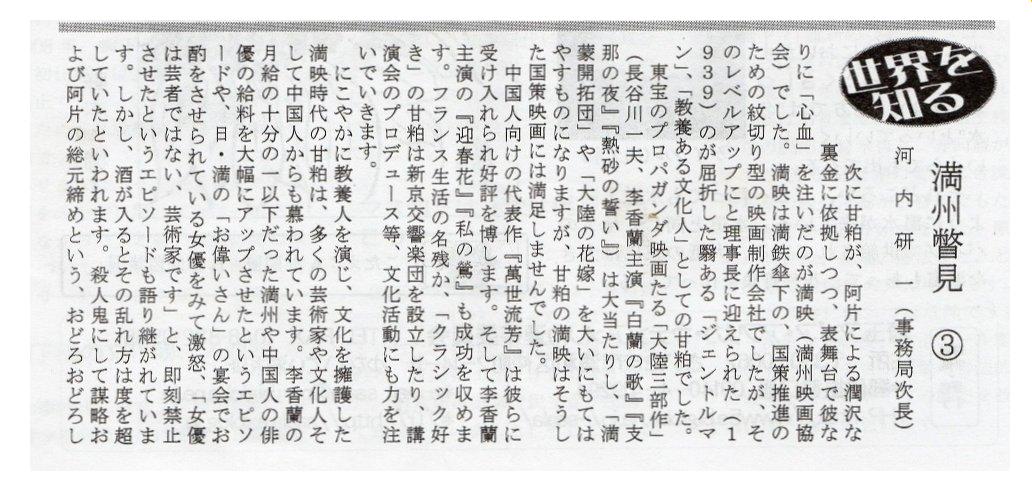 世界を
知る
満州瞥見 ③
河内研一（事務局次長）
次に甘粕が、阿片による潤沢な
裏金に依拠しつつ、表舞台で彼な
りに「心血」を注いだのが満映（満州映画協
会）でした。満映は満鉄傘下の、国策推進の
ための紋切り型の映画制作会社でしたが、そ
のレベルアップにと理事長に迎えられた（1
939）のが屈折した翳ある「ジェントルマ
ン」、「教養ある文化人」としての甘粕でした。
東宝のプロパガンダ映画たる「大陸三部作」
（長谷川一夫、李香蘭主演『白蘭の歌』『支
那の夜』『熱砂の誓い』）は大当たりし、「満
蒙開拓団」や「大陸の花嫁」を大いにもては
やすものになりますが、甘粕の満映はそうし
た国策映画には満足しませんでした。
中国人向けの代表作『萬世流芳』は彼らに
受け入れられ好評を博します。そして李香蘭
主演の『迎春花』『私の鶯』も成功を収めま
す。フランス生活の名残か、「クラシック好
き」の甘粕は新京交響楽団を設立したり、講
演会のプロデュース等、文化活動にも力を注
いでいきます。
にこやかに教養人を演じ、文化を擁護した
満映時代の甘粕は、多くの芸術家や文化人そ
して中国人からも慕われています。李香蘭の
月給の十分の一以下だった満州や中国人の俳
優の給料を大幅にアップさせたというエピソ
ードや、日・満の「お偉いさん」の宴会でお
酌をさせられている女優をみて激怒、「女優
は芸者ではない、芸術家です」と、即刻禁止
させたというエピソードも語り継がれていま
す。しかし、酒が入るとその乱れ方は度を超
していたといわれます。殺人鬼にして謀略お
よび阿片の総元締めという、おどろおどろし